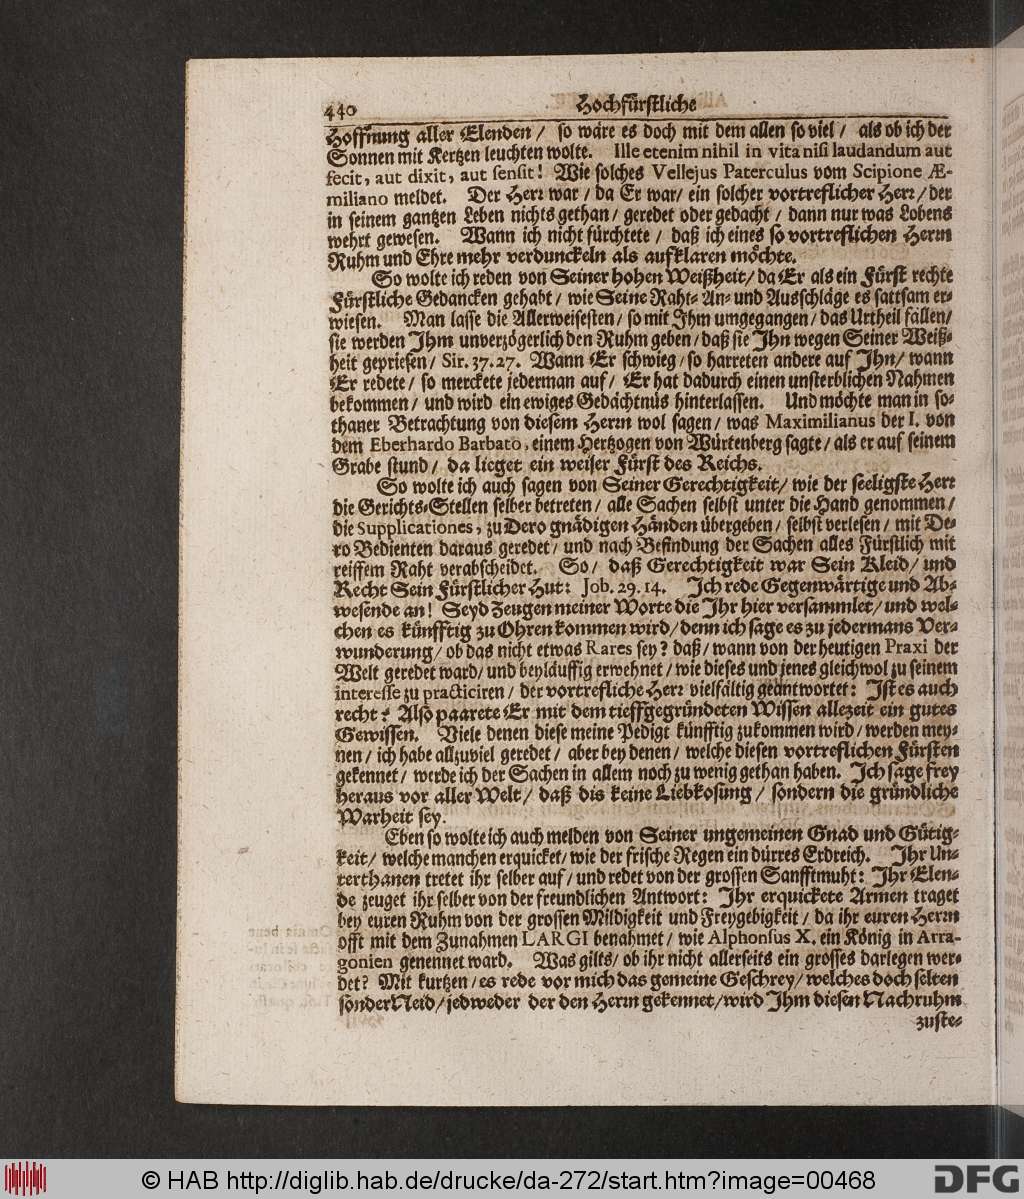 440 Hochfürstliche
Hoffnung aller Elenden / so wäre es doch mit dem allen so viel / als ob ich der
Sonnen mit Kertzen leuchten wolte. Ille etenim nihil in vita nisi laudandum aut
fecit, aut dixit, aut sensit! Wie solches Vellejus Paterculus vom Scipione Æ-
miliano meldet. Der Herr war / da Er war / ein solcher vortreflicher Herr / der
in seinem gantzen Leben nichts gethan / geredet oder gedacht / dann nur was Lobens
wehrt gewesen. Wann ich nicht fürchtete / daß ich eines so vortreflichen Herrn
Ruhm und Ehre mehr verdunckeln als aufklaren möchte.
So wolte ich reden von Seiner hohen Weißheit / da Er als ein Fürst rechte
Fürstliche Gedancken gehabt / wie Seine Raht- An- und Ausschläge es sattsam er-
wiesen. Man lasse die Allerweisesten / so mit Ihm umgegangen / das Urtheil fällen /
sie werden Ihm unverzögerlich den Ruhm geben / daß sie Ihn wegen Seiner Weiß-
heit gepriesen / Sir. 37. 27. Wann Er schwieg / so harreten andere auf Ihn / wann
Er redete / so merckete jederman auf / Er hat dadurch einen unsterblichen Nahmen
bekommen / und wird ein ewiges Gedächtnüs hinterlassen. Und möchte man in so-
thaner Betrachtung von diesem Herrn wol sagen / was Maximilianus der I. von
dem Eberhardo Barbato, einem Hertzogen von Würtenberg sagte / als er auf seinem
Grabe stund / da lieget ein weiser Fürst des Reichs.
So wolte ich auch sagen von Seiner Gerechtigkeit / wie der seeligste Herr
die Gerichts-Stellen selber betreten / alle Sachen selbst unter die Hand genommen /
die Supplicationes, zu Dero gnädigen Händen übergeben / selbst verlesen / mit De-
ro Bedienten daraus geredet / und nach Befindung der Sachen alles Fürstlich mit
reiffem Raht verabscheidet. So / daß Gerechtigkeit war Sein Kleid / und
Recht Sein Fürstlicher Hut: Job. 29. 14. Ich rede Gegenwärtige und Ab-
wesende an! Seyd Zeugen meiner Worte die Ihr hier versammlet / und wel-
chen es künfftig zu Ohren kommen wird / denn ich sage es zu jedermans Ver-
wunderung / ob das nicht etwas Rares sey? daß / wann von der heutigen Praxi der
Welt geredet ward / und beyläuffig erwehnet / wie dieses und jenes gleichwol zu seinem
interesse zu practiciren / der vortrefliche Herr vielfältig geantwortet: Ist es auch
recht? Also paarete Er mit dem tieffgegründeten Wissen allezeit ein gutes
Gewissen. Viele denen diese meine Pedigt künfftig zukommen wird / werden mey-
nen / ich habe allzuviel geredet / aber bey denen / welche diesen vortreflichen Fürsten
gekennet / werde ich der Sachen in allem noch zu wenig gethan haben. Ich sage frey
heraus vor aller Welt / daß dis keine Liebkosung / sondern die gründliche
Warheit sey.
Eben so wolte ich auch melden von Seiner ungemeinen Gnad und Gütig-
keit / welche manchen erquicket / wie der frische Regen ein dürres Erdreich. Ihr Un-
terthanen tretet ihr selber auf / und redet von der grossen Sanfftmuht: Ihr Elen-
de zeuget ihr selber von der freundlichen Antwort: Ihr erquickete Armen traget
bey euren Ruhm von der grossen Mildigkeit und Freygebigkeit / da ihr euren Herrn
offt mit dem Zunahmen LARGI benahmet / wie Alphonsus X. ein König in Arra-
gonien genennet ward. Was gilts / ob ihr nicht allerseits ein grosses darlegen wer-
det? Mit kurtzen / es rede vor mich das gemeine Geschrey / welches doch selten
sonder Neid / jedweder der den Herrn gekennet / wird Ihm diesen Nachruhm
zuste-
© HAB http://diglib.hab.de/drucke/da-272/start.htm?image=00468
DFG